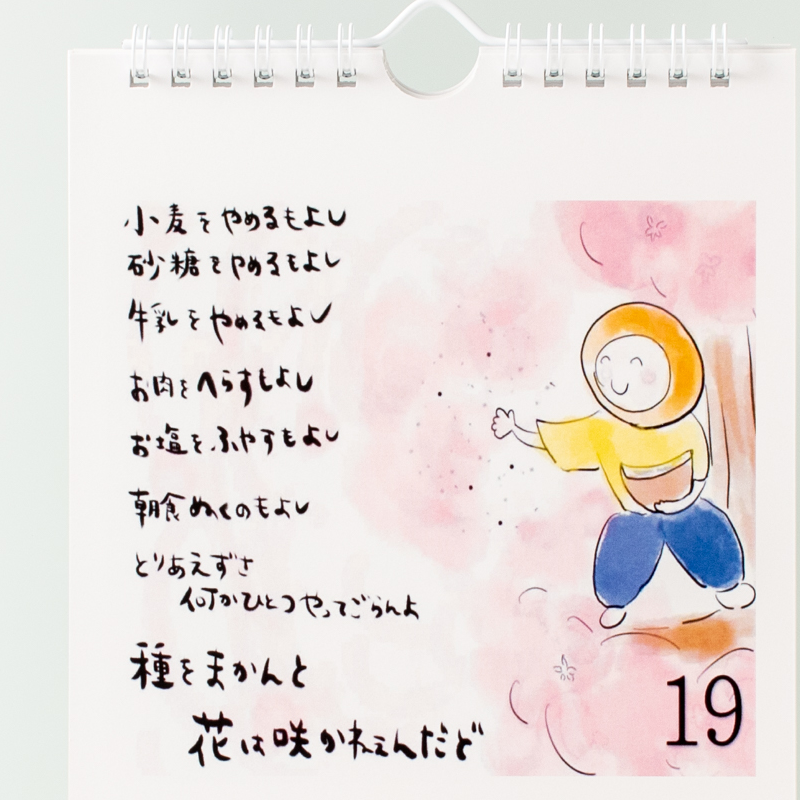 小麦をやめるもよし
砂糖をやめるもよし
牛乳をやめるもよし
お肉をへらすもよし
お塩をふやすもよし
朝食ぬくのもよし
とりあえずさ
何かひとつやってごらんよ
種をまかんと
花は咲かねぇんだど
19